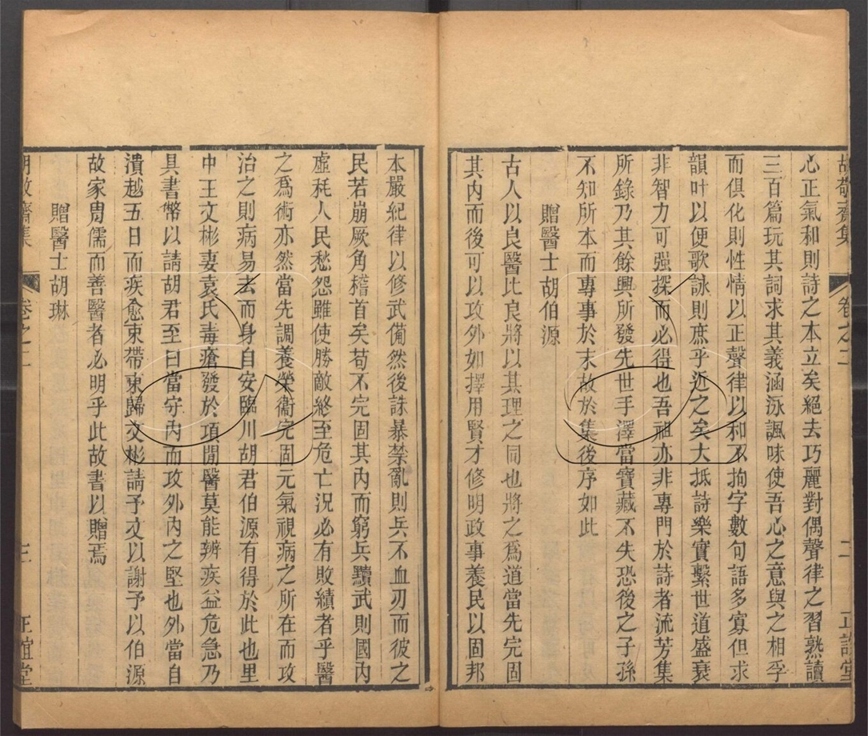 胡敬齋集 卷之二 二 正誼堂
心正氣和則詩之本立矣絕去巧麗對偶聲律之習熟讀
三百篇玩其詞求其義涵泳諷味使吾心之意與之相孚
而俱化則性情以正聲律以和不拘字數句語多寡但求
韻叶以便歌詠則庶乎近之矣大抵詩樂實繫世道盛衰
非智力可強探而必得也吾祖亦非專門於詩者流芳集
所錄乃其餘興所發先世手澤當寶藏不失恐後之子孫
不知所本而專事於末故於集後序如此
贈醫士胡伯源
古人以良醫比良將以其理之同也將之爲道當先完固
其內而後可以攻外如擇用賢才修明政事養民以固邦
本嚴紀律以修武僃然後誅暴禁亂則兵不血刃而彼之
民若崩厥角稽首矣苟不完固其內而窮兵黷武則國內
虛耗人民愁怨雖使勝敵終至危亡況必有敗績者乎醫
之爲術亦然當先調養榮衞完固元氣視病之所在而攻
治之則病易去而身自安臨川胡君伯源有得於此也里
中王文彬妻袁氏毒瘡發於項閒醫莫能辨疾益危急乃
具書幣以請胡君至曰當守內而攻外內之堅也外當自
潰越五日而疾愈束帶東歸文彬請予文以謝予以伯源
故家胄儒而善醫者必明乎此故書以贈焉
贈醫士胡琳
胡敬齋集 卷之二 三 正誼堂